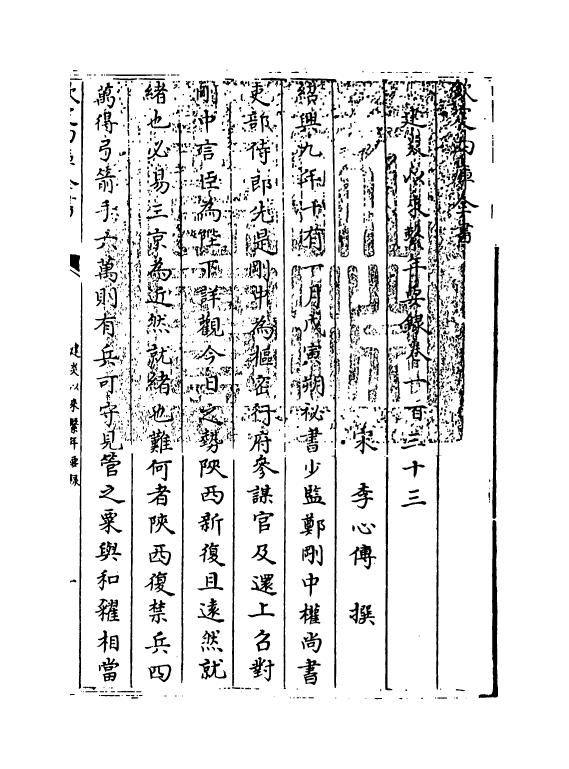 欽定四庫全書
建炎以來繫年要錄卷一百三十三
宋 李心傳 撰
紹興九年十有一月戊寅朔祕書少監鄭剛中權尚書
吏部侍郎先是剛中為樞密行府參謀官及還上召對
剛中言臣為陛下詳觀今日之勢陜西新復且遠然就
緒也必易三京為近然就緒也難何者陜西復禁兵四
萬得弓箭手六萬則有兵可守見管之粟與和糴相當
欽定四庫全書
建炎以來繫年要錄
一